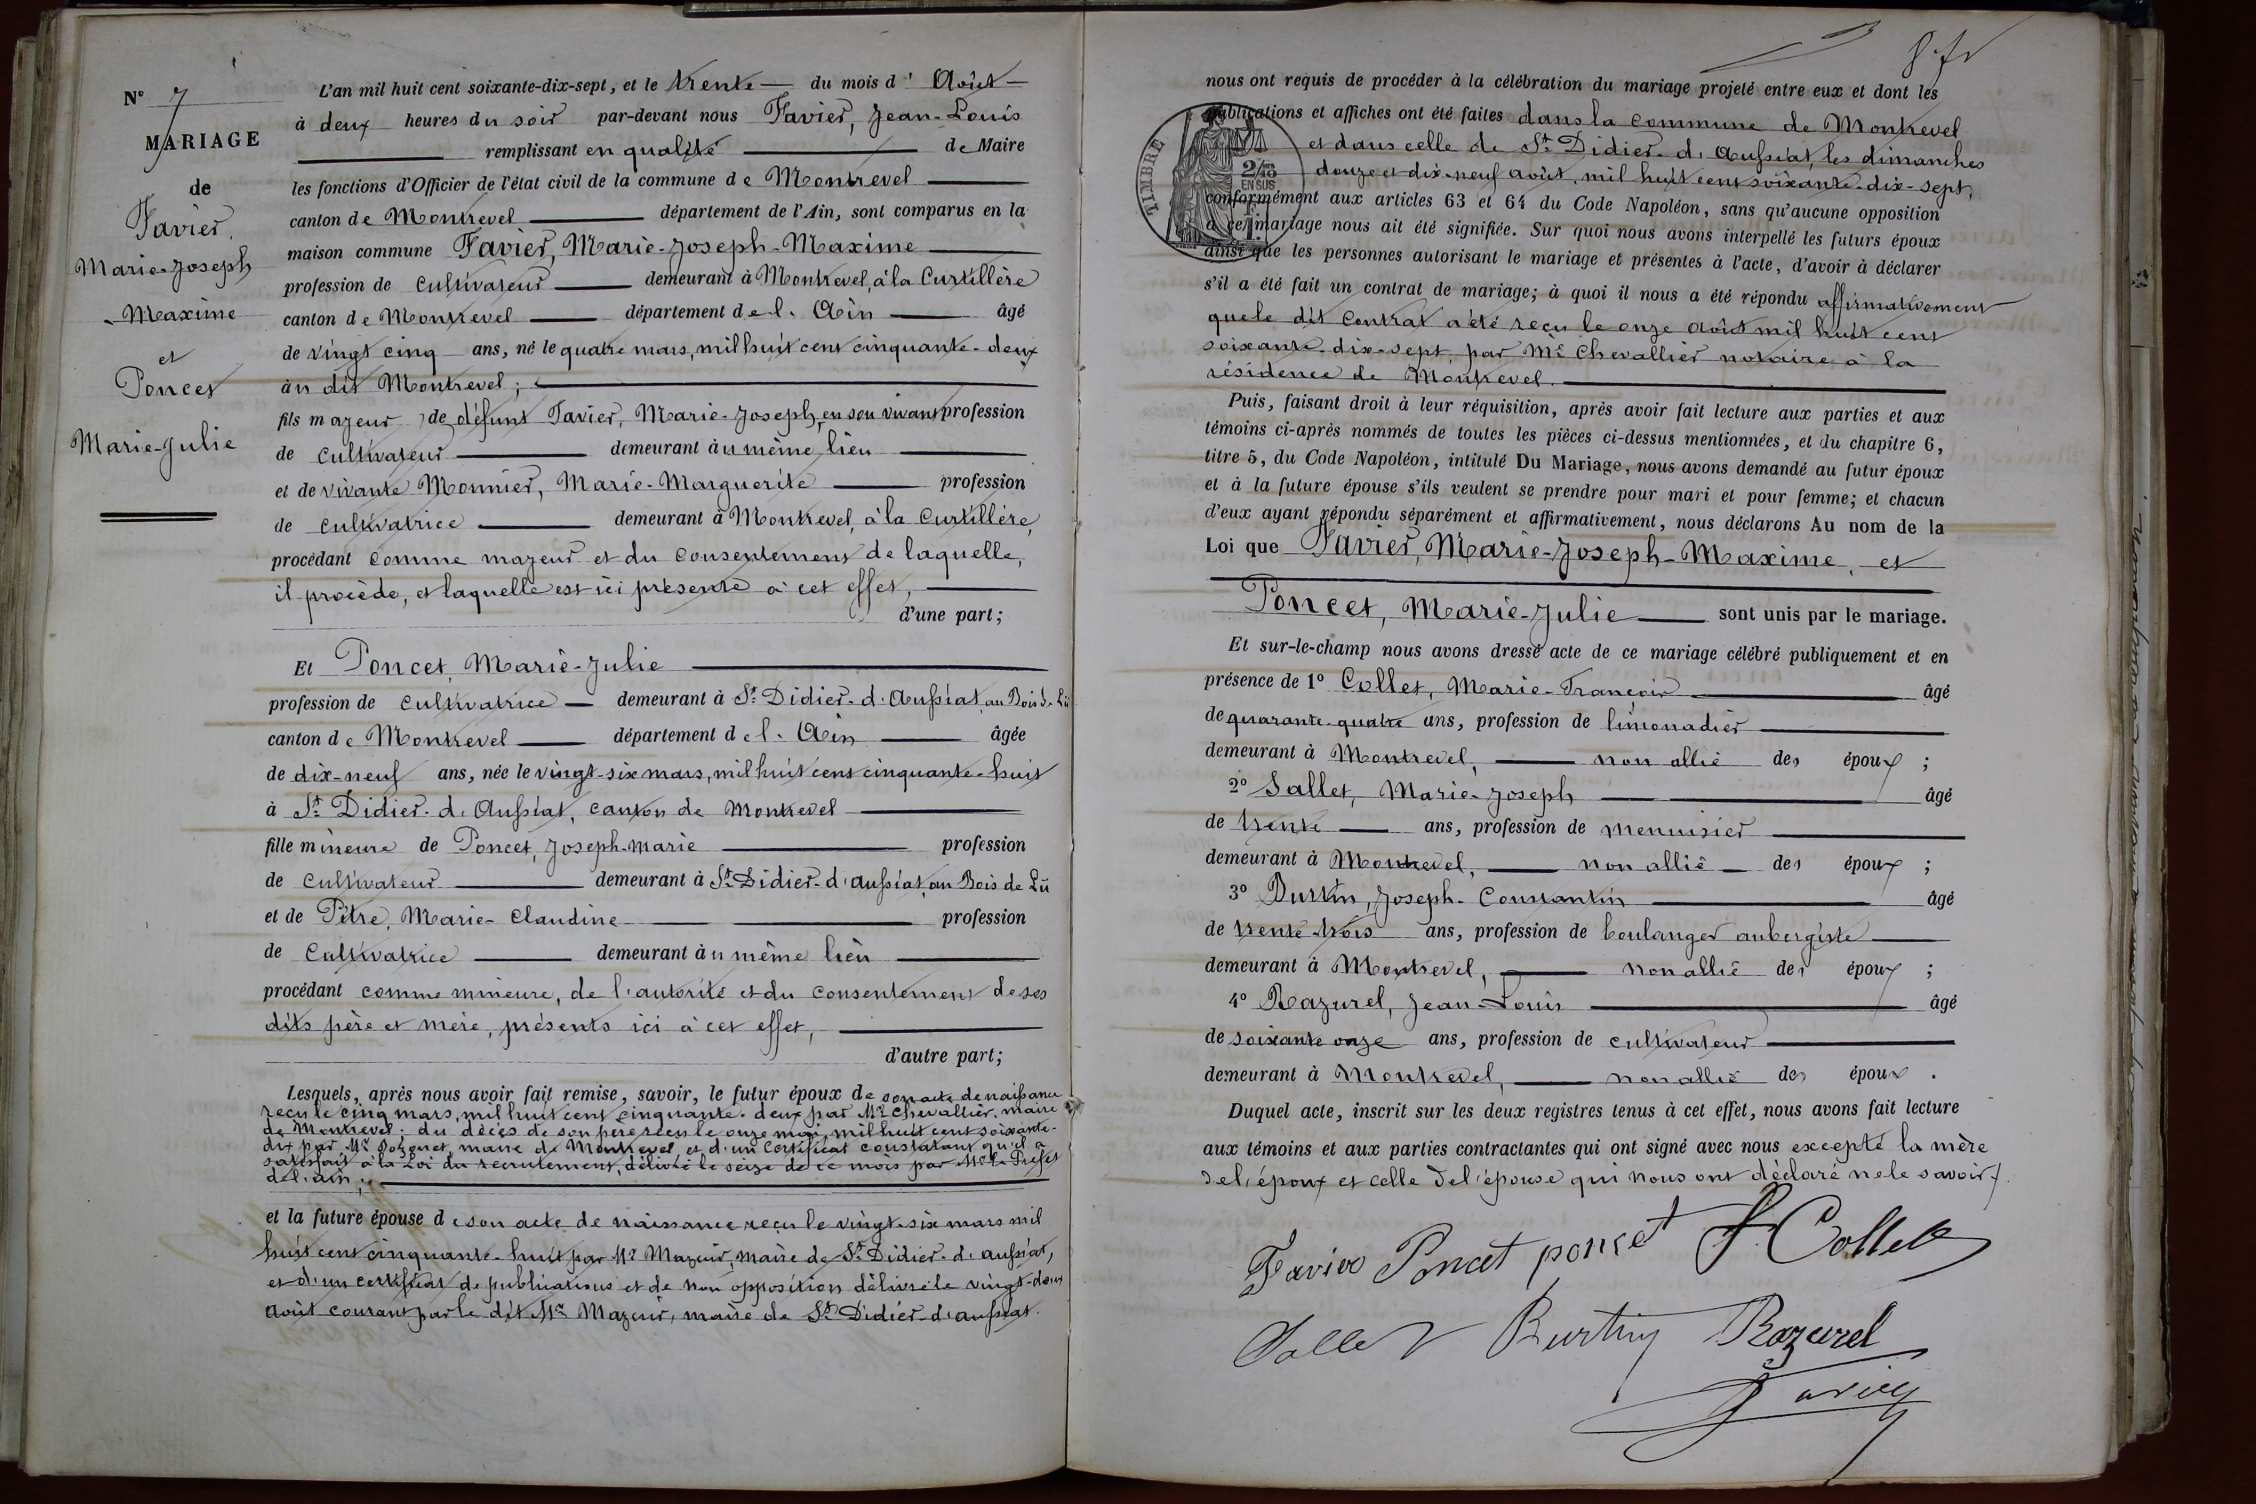 N° 7
MARIAGE
de
Favier
Marie-Joseph
-Maxime
et
Poncet
Marie-Julie
L'an mil huit cent soixante-dix-sept, et le trente du mois d' Août
à deux heures du soir par-devant nous Favier, Jean-Louis
remplissant en qualité de Maire
les fonctions d'Officier de l'état civil de la commune de Montrevel
canton de Montrevel département de l'Ain, sont comparus en la
maison commune Favier, Marie-Joseph-Maxime
profession de Cultivateur demeurant à Montrevel, à la Curtillère
canton de Montrevel département de l'Ain âgé
de vingt cinq ans, né le quatre mars, mil huit cent cinquante-deux
au dit Montrevel ;
fils majeur de défunt Favier, Marie-Joseph, en son vivant profession
de cultivateur demeurant au même lieu
et de vivante Monnier, Marie-Marguerite profession
de cultivatrice demeurant à Montrevel, à la Curtillère,
procédant comme majeur et du consentement de laquelle,
il procède, et laquelle est ici présente à cet effet,
d'une part;
Et Poncet, Marie-Julie
profession de cultivatrice demeurant à St Didier-d'Aussiat, au Bois de Lü
canton de Montrevel département de l'Ain âgée
de dix-neuf ans, née le vingt-six mars, mil huit cent cinquante-huit
à St Didier-d'Aussiat, canton de Montrevel
fille mineure de Poncet, Joseph-Marie profession
de cultivateur demeurant à St Didier-d'aussiat, au Bois de Lü
et de Pitre, Marie-Claudine profession
de Cultivatrice demeurant au même lieu
procédant comme mineure, de l'autorité et du consentement de ses
dits père et mère, présents ici à cet effet,
d'autre part;
Lesquels, après nous avoir fait remise, savoir, le futur époux de son acte de naissance
reçu le cinq mars, mil huit cent cinquante-deux par Mr Chevallier, maire
de Montrevel; du décès de son père reçu le onze mai, mil huit cent soixante-
dix par Mr maire de Montrevel, et d'un Certificat constatant qu'il a
satisfait à la Loi du recrutement, délivré le seize de ce mois par Mr le Préfet
de l'ain;
et la future épouse de son acte de naissance reçu le vingt-six mars mil
huit cent cinquante-huit par Mr Mazuir, maire de St Didier-d'aussiat,
et d'un certificat de publications et de non opposition délivré le vingt-deux
août courant par le dit Mr Mazuir, maire de St Didier-d'aussiat.
nous ont requis de procéder à la célébration du mariage projeté entre eux et dont les
publications et affiches ont été faites dans la commune de Montrevel
et dans celle de St Didier-d'Aussiat, les dimanches
douze et dix-neuf août, mil huit cent soixante-dix-sept,
TIMBRE
2/10 EN SUS
conformément aux articles 63 et 64 du Code Napoléon, sans qu'aucune opposition
à ce mariage nous ait été signifiée. Sur quoi nous avons interpellé les futurs époux
ainsi que les personnes autorisant le mariage et présentes à l'acte, d'avoir à déclarer
s'il a été fait un contrat de mariage; à quoi il nous a été répondu affirmativement
que le dit Contrat a été reçu le onze août mil huit cent
soixante-dix-sept, par Me Chevallier notaire à la
résidence de Montrevel.
Puis, faisant droit à leur réquisition, après avoir fait lecture aux parties et aux
témoins ci-après nommés de toutes les pièces ci-dessus mentionnées, et du chapitre 6,
titre 5, du Code Napoléon, intitulé Du Mariage, nous avons demandé au futur époux
et à la future épouse s'ils veulent se prendre pour mari et pour femme; et chacun
d'eux ayant répondu séparément et affirmativement, nous déclarons Au nom de la
Loi que Favier, Marie-Joseph-Maxime, et
Poncet, Marie-Julie sont unis par le mariage.
Et sur-le-champ nous avons dressé acte de ce mariage célébré publiquement et en
présence de 1° Collet, Marie-François âgé
de quarante-quatre ans, profession de limonadier
demeurant à Montrevel, non allié des époux ;
2° Sallet, Marie-Joseph âgé
de trente ans, profession de menuisier
demeurant à Montrevel, non allié des époux ;
3° Burtin, Joseph-Constantin âgé
de trente-trois ans, profession de boulanger aubergiste
demeurant à Montrevel, non allié des époux ;
4° Razurel, Jean-Louis âgé
de soixante onze ans, profession de cultivateur
demeurant à Montrevel, non allié des époux .
Duquel acte, inscrit sur les deux registres tenus à cet effet, nous avons fait lecture
aux témoins et aux parties contractantes qui ont signé avec nous excepté la mère
de l'époux et celle de l'épouse qui nous ont déclaré ne le savoir.
Favier Poncet poncet F. Collet
Sallet Burtin Razurel
Favier